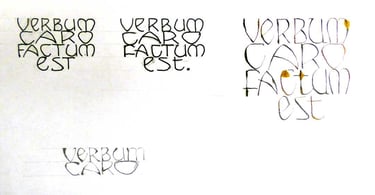 VERBUM
CARO
FACTUM
EST
VERBUM
CARO
FACTUM
EST.
VERBUM
CARO
FACTUM
EST
VERBUM
CARO